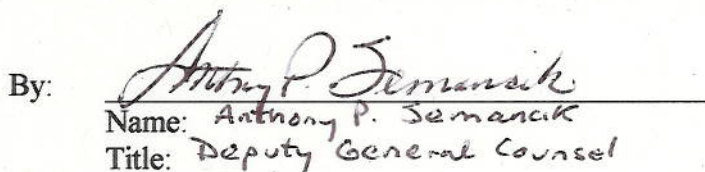 By: Anthony P. Semancik
Name: Anthony P. Semancik
Title: Deputy General Counsel